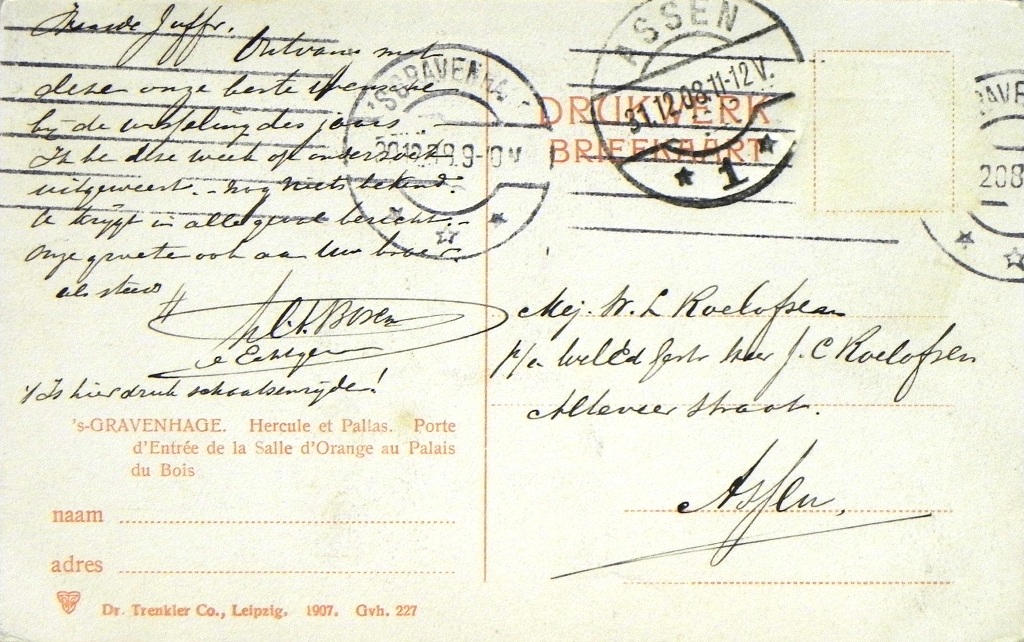 Waarde Juffr.
Ontvang met
deze onze beste wenschen
bij de wisseling des jaars
Ik be deze week op onderzoek
uitgeweest. - nog niets bekend.
U krijgt in alle geval bericht. -
Onze groete ook aan Uw broer.
als steeds
Boxen
e Echtgen
Is hier druk schaatsenrijde!
's-GRAVENHAGE. Hercule et Pallas. Porte
d'Entrée de la Salle d'Orange au Palais
du Bois
naam
adres
Dr. Trenkler Co., Leipzig. 1907. Gvh. 227
'S GRAVENHA
9-10 V
ASSEN
31.12.08.11-12V.
1
DRUKWERK
BRIEFKAART
RAVE
208
Mej. W. L Roelofsen
p/a WelEd gestr heer J. C Roelofsen
Alteveer straat.
Assen,